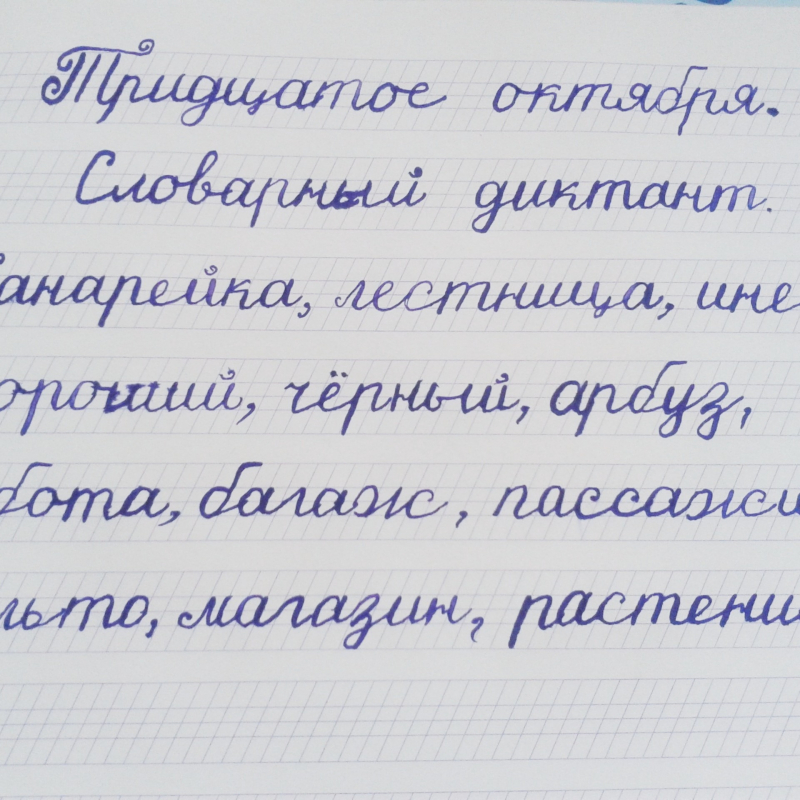 Тридцатое октября.
Словарный диктант.
анарейка, лестница, ине
ороший, чёрный, арбуз,
бота, багаж, пассажи
льто, магазин, растени